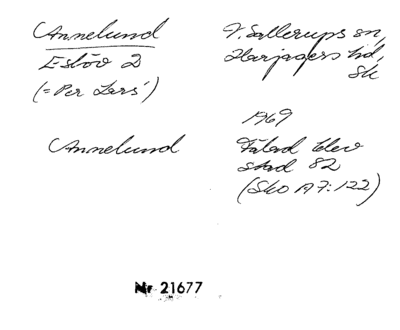 Annelund
V. Sallerups sn,
Eslöv 2
Harjagers hd,
Sk
(= Per Lars')
1969
Annelund
Fälad blev
stad 82
(Sko A7:122)
Nr 21677